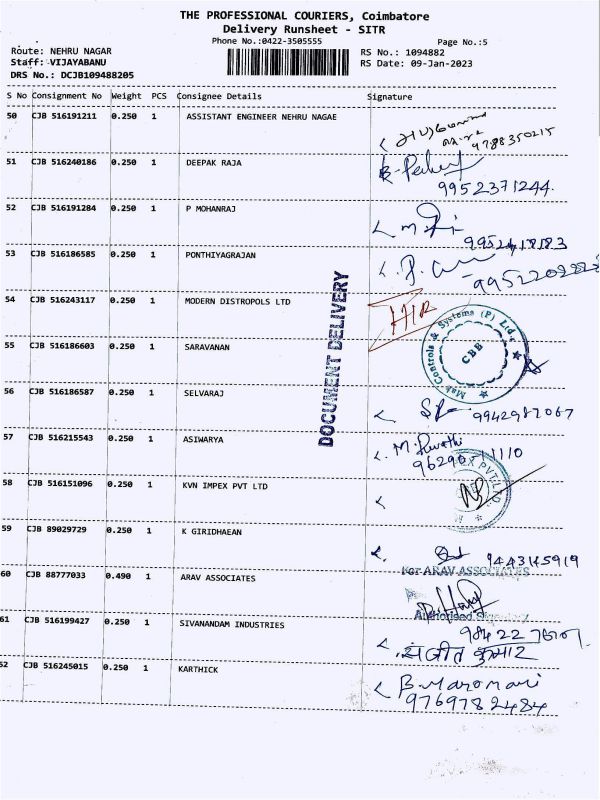 THE PROFESSIONAL COURIERS, Coimbatore
Delivery Runsheet - SITR
Phone No.:0422-3505555
Page No.:5
Route: NEHRU NAGAR
RS No.: 1094882
Staff: VIJAYABANU
RS Date: 09-Jan-2023
DRS No.: DCJB109488205
S No Consignment No Weight PCS Consignee Details Signature
50 CJB 516191211 0.250 1 ASSISTANT ENGINEER NEHRU NAGAE
9788350215
51 CJB 516240186 0.250 1 DEEPAK RAJA
9952371244.
52 CJB 516191284 0.250 1 P MOHANRAJ
53 CJB 516186585 0.250 1 PONTHIYAGRAJAN
54 CJB 516243117 0.250 1 MODERN DISTROPOLS LTD
Mak Controls & Systems (P) Ltd.
CBB
DOCUMENT DELIVERY
55 CJB 516186603 0.250 1 SARAVANAN
56 CJB 516186587 0.250 1 SELVARAJ
9942987067
57 CJB 516215543 0.250 1 ASIWARYA
M. Revathi
58 CJB 516151096 0.250 1 KVN IMPEX PVT LTD
59 CJB 89029729 0.250 1 K GIRIDHAEAN
9443145919
60 CJB 88777033 0.490 1 ARAV ASSOCIATES
For ARAV ASSOCIATES
Authorised Signatory
61 CJB 516199427 0.250 1 SIVANANDAM INDUSTRIES
कुमार
52 CJB 516245015 0.250 1 KARTHICK
9769782484